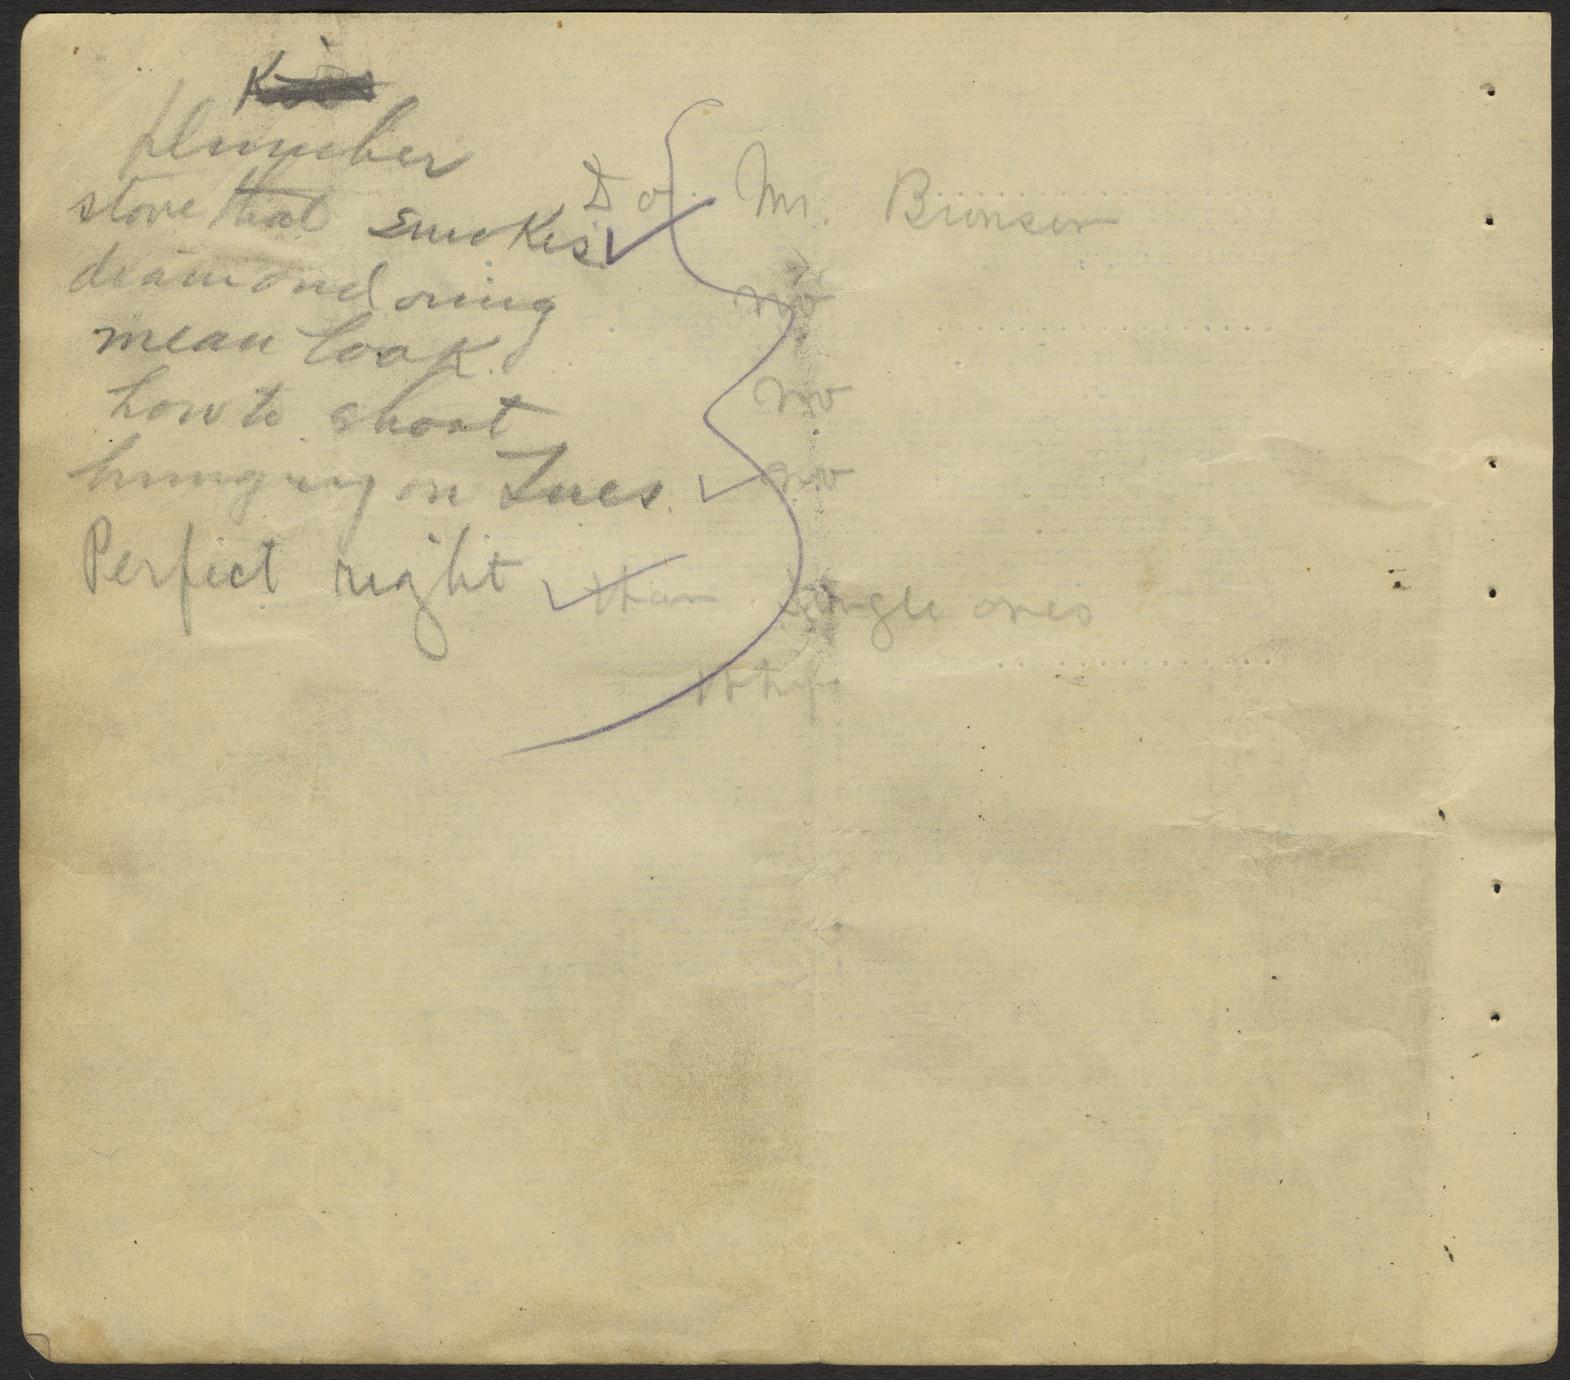 plumber
stove that smokes
diamond ring
mean look
how to shoot
hungry on Tues.
Perfect right
Do Mr. Bronson
no
no
no
than single ones